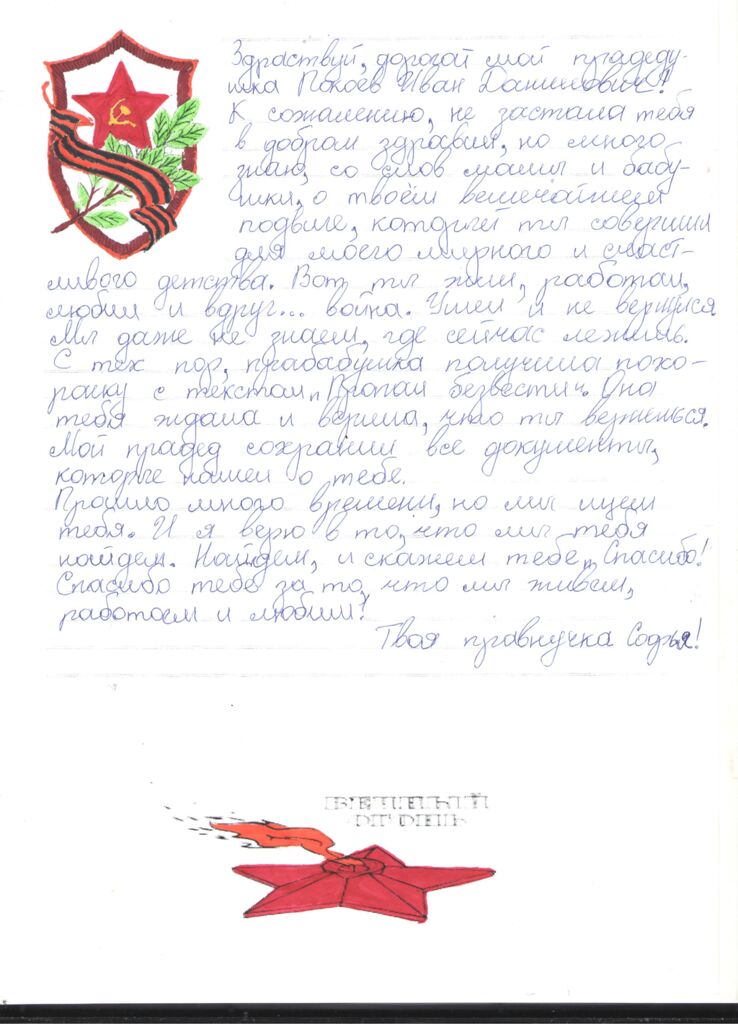 Здраствуй, дорогой мой прадеду-
шка Покоев Иван Данилович!
К сожалению, не застала тебя
в добром здравии, но много
знаю, со слов мамы и бабу-
шки, о твоём величайшем
подвиге, который ты совершил
для моего мирного и счаст-
ливого детства. Вот ты жил, работал,
любил и вдруг... война. Ушел и не вернулся.
Мы даже не знаем, где сейчас лежишь.
С тех пор, прабабушка получила похо-
ронку с текстом „Пропал безвести". Она
тебя ждала и верила, что ты вернешься.
Мой прадед сохранил все документы,
которые нашел о тебе.
Прошло много времени, но мы ищем
тебя. И я верю в то, что мы тебя
найдем. Найдем, и скажем тебе „Спасибо!
Спасибо тебе за то, что мы живем,
работаем и любим!
Твоя правнучка Софья!
ВЕЧНЫЙ
ОГОНЬ